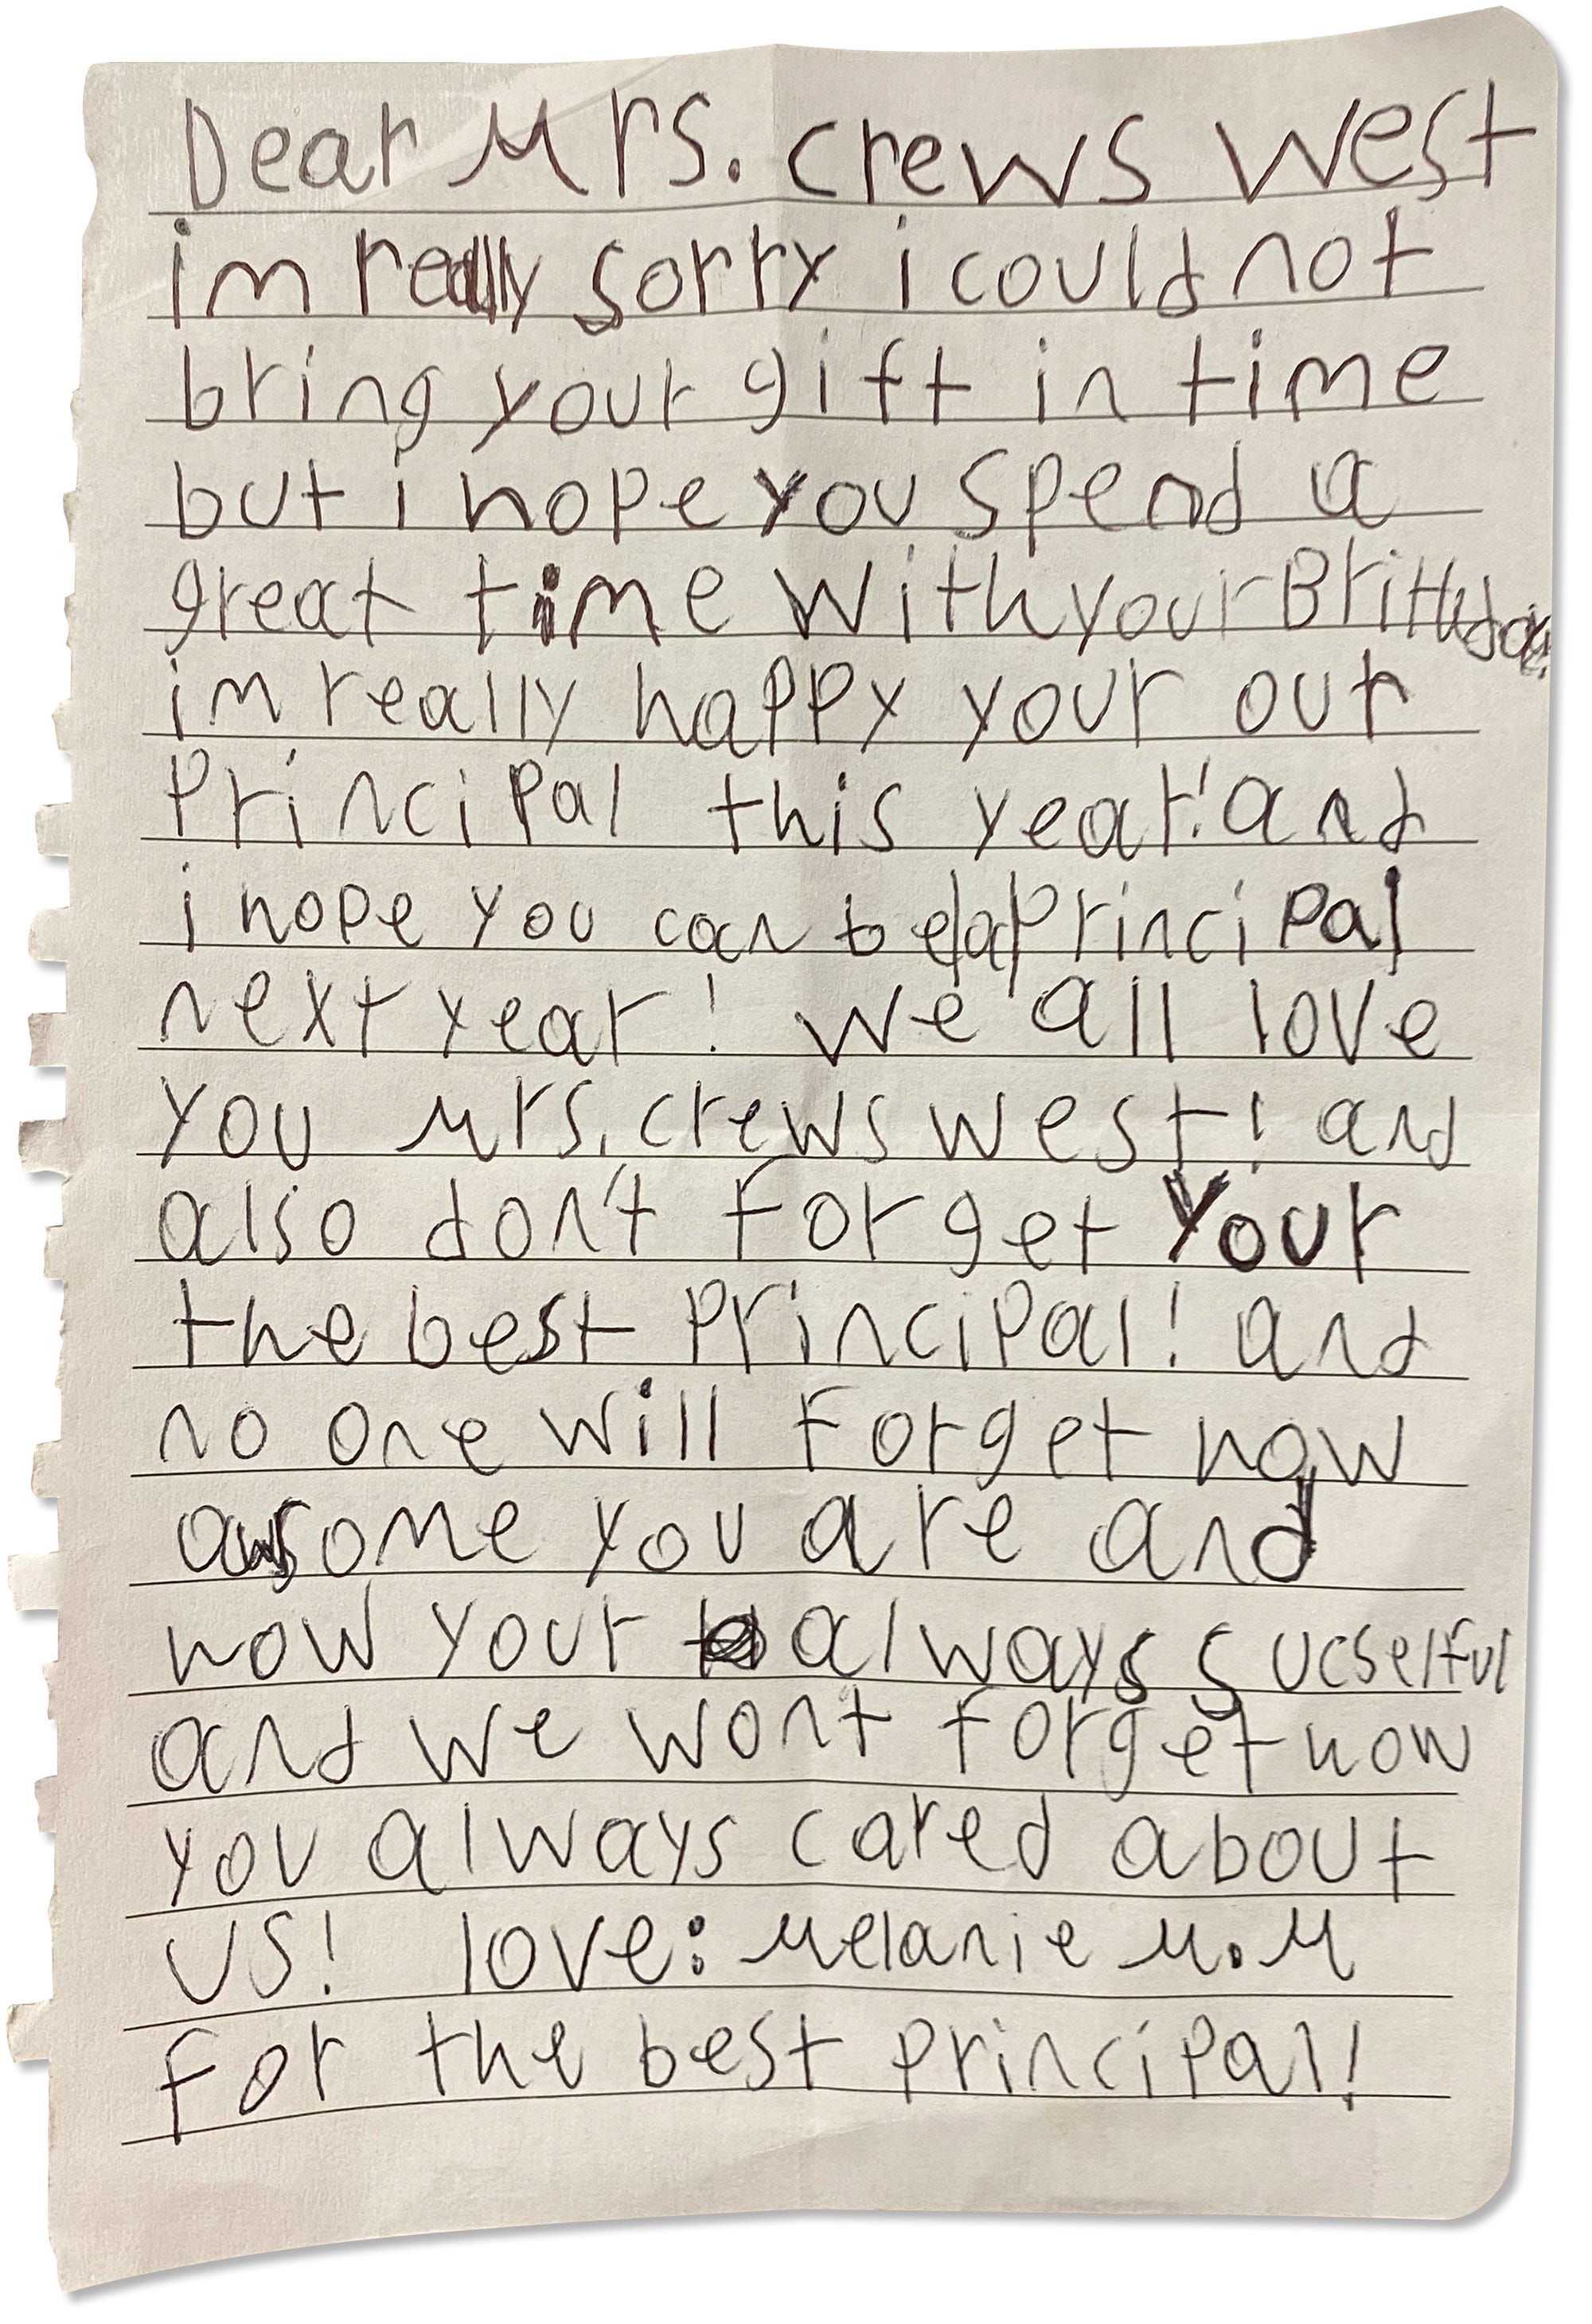 Dear Mrs. crews west
im really sorry i could not
bring your gift in time
but i hope you spend a
great time with your Brithday.
im really happy your our
Principal this year! and
i hope you can be a Principal
next year! we all love
you Mrs. crews west! and
also don't forget Your
the best Principal! and
no one will forget how
awsome you are and
how your always sucselful
and we wont forget how
you always cared about
us! love: Melanie M.M
for the best principal!